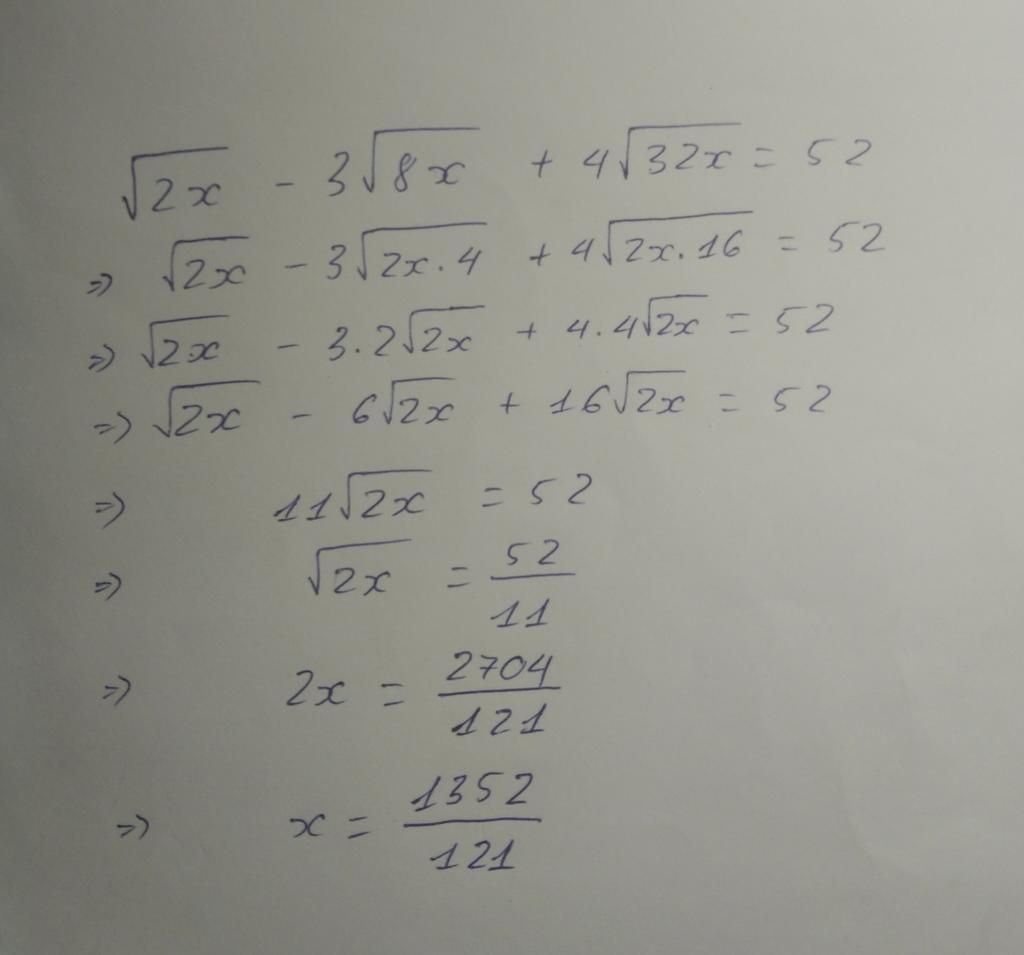 √2x - 3√8x + 4√32x = 52
=> √2x - 3√2x.4 + 4√2x.16 = 52
=> √2x - 3.2√2x + 4.4√2x = 52
=> √2x - 6√2x + 16√2x = 52
=> 11√2x = 52
=> √2x = 52/11
=> 2x = 2704/121
=> x = 1352/121